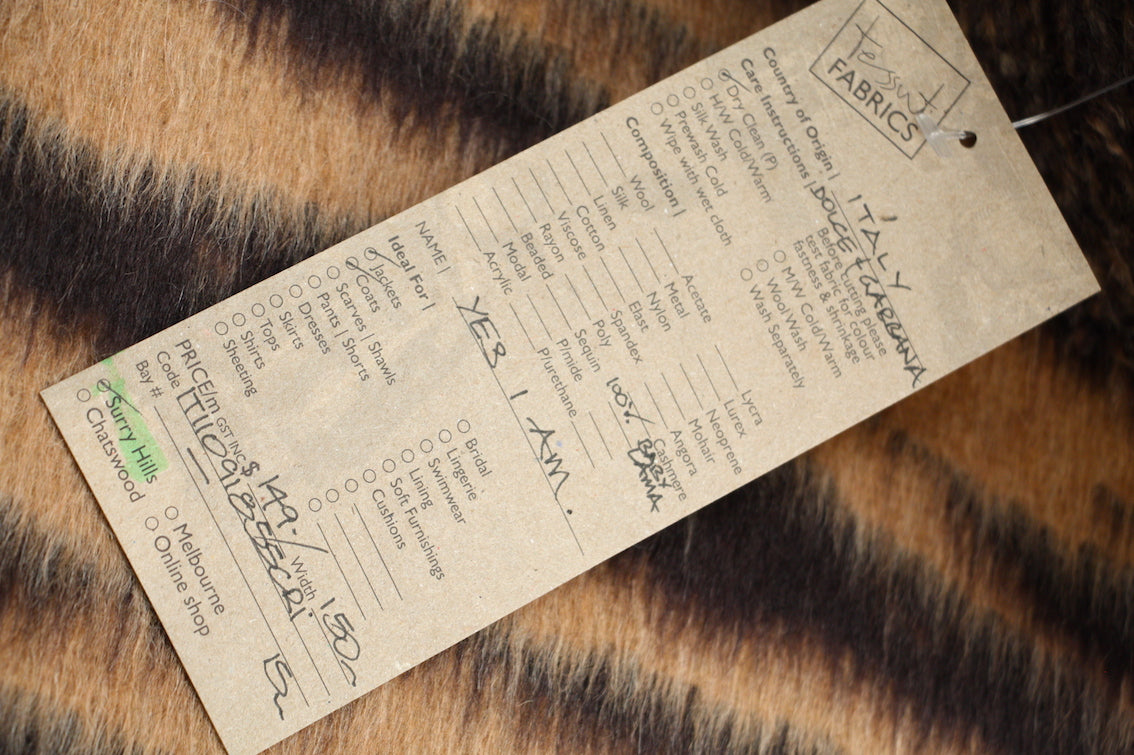 tessuti
FABRICS
Country of Origin | ITALY
Care Instructions | DOLCE & GABBANA
Dry Clean (P)
H/W Cold/Warm
Silk Wash
Prewash Cold
Wipe with wet cloth
Before cutting please
test fabric for colour
fastness & shrinkage
M/W Cold/Warm
Wool Wash
Wash Separately
Composition |
Wool
Silk
Linen
Cotton
Viscose
Rayon
Beaded
Modal
Acrylic
Acetate
Metal
Nylon
Elast
Spandex
Poly
Sequin
P/mide
P/urethane
Lycra
Lurex
Neoprene
Mohair
Angora
Cashmere
100% BABY
LAMA
NAME | YES I AM.
Ideal For |
Jackets
Coats
Scarves | Shawls
Pants | Shorts
Dresses
Skirts
Tops
Shirts
Sheeting
Bridal
Lingerie
Swimwear
Lining
Soft Furnishings
Cushions
PRICE/m GST INC $ 149./ Width 150
Code
Bay #
Surry Hills
Chatswood
Melbourne
Online shop